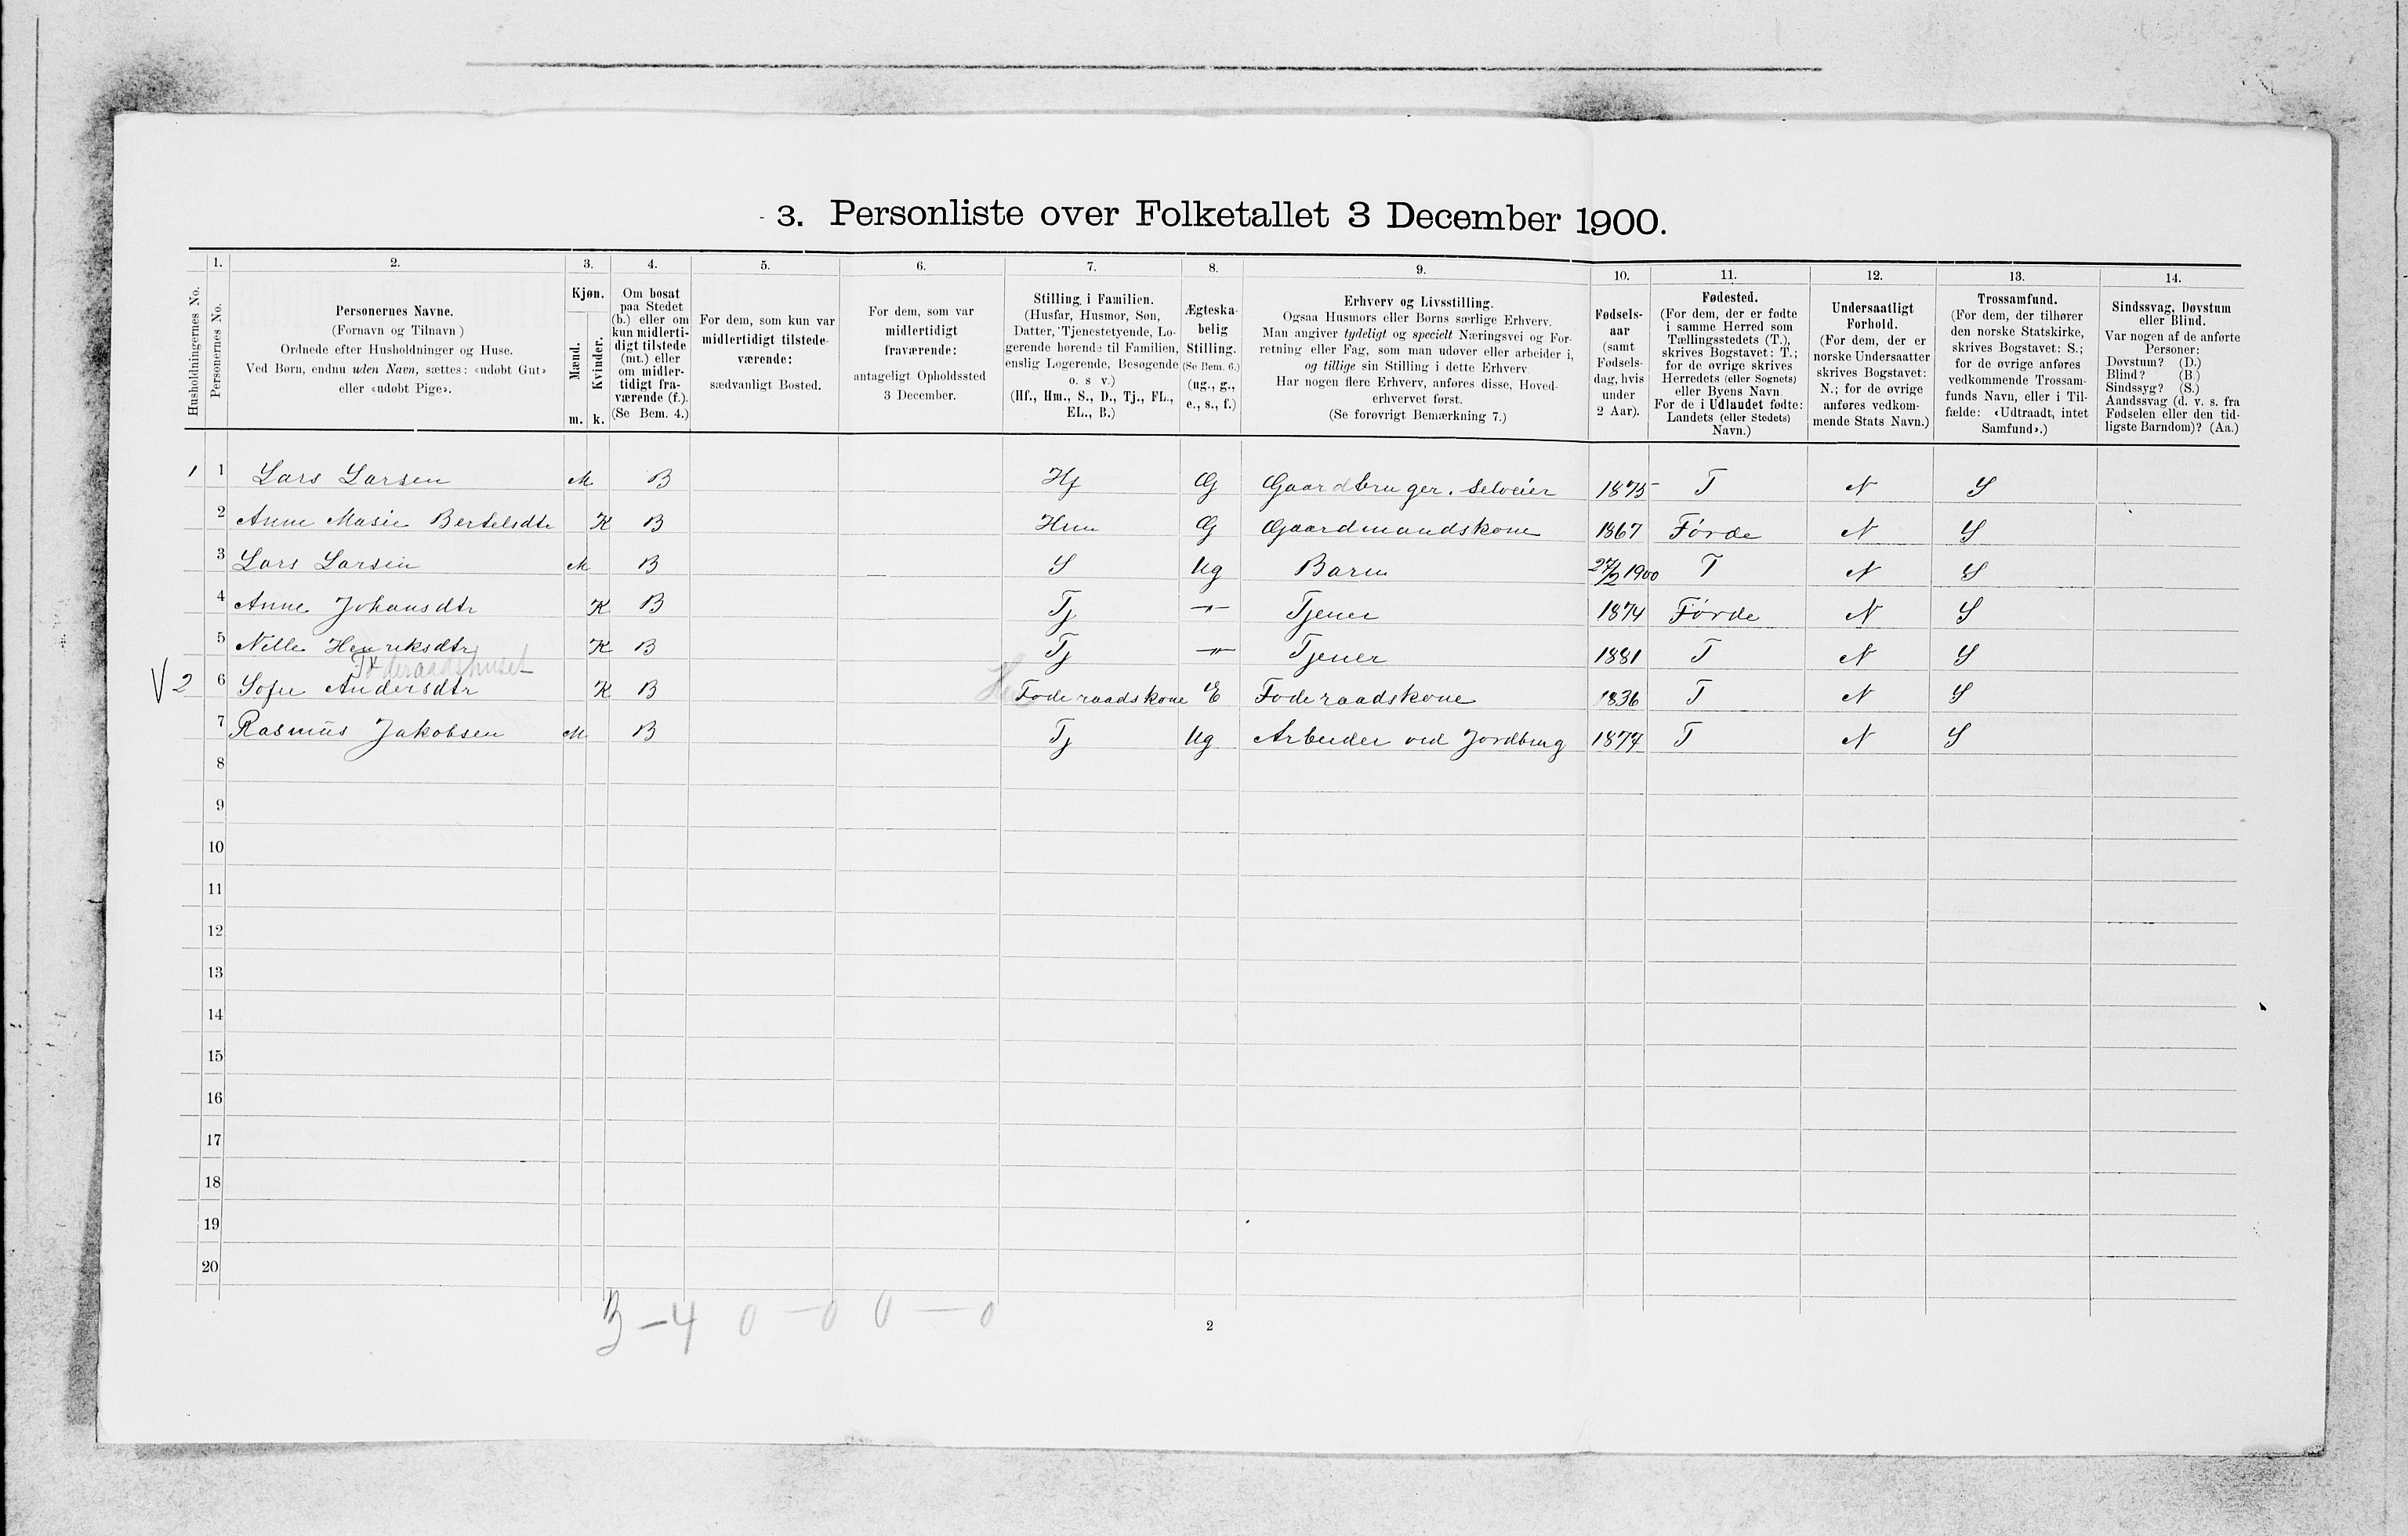 3. Personliste over Folketallet 3 December 1900.
1. 2. 3. 4. 5. 6. 7. 8. 9. 10. 11. 12. 13. 14.
Husholdningernes No.
Personernes No.
Personernes Navne.
(Fornavn og Tilnavn)
Ordnede efter Husholdninger og Huse.
Ved Børn, endnu uden Navn, sættes: «udøbt Gut»
eller «udøbt Pige».
Kjøn.
Mænd.
Kvinder.
m. k.
Om bosat
paa Stedet
(b.) eller om
kun midlerti-
digt tilstede
(mt.) eller
om midler-
tidigt fra-
værende (f.).
(Se Bem. 4.)
For dem, som kun var
midlertidigt tilstede-
værende:
sædvanligt Bosted.
For dem, som var
midlertidigt
fraværende:
antageligt Opholdssted
3 December.
Stilling i Familien.
(Husfar, Husmor, Søn,
Datter, Tjenestetyende, Lo-
gerende hørende til Familien,
enslig Logerende, Besøgende
o. s v.)
(Hf., Hm., S., D., Tj., FL.,
EL., B.)
Ægteska-
belig
Stilling.
(Se Bem. 6.)
(ug., g.,
e., s., f.)
Erhverv og Livsstilling.
Ogsaa Husmors eller Børns særlige Erhverv.
Man angiver tydeligt og specielt Næringsvei og For-
retning eller Fag, som man udøver eller arbeider i,
og tillige sin Stilling i dette Erhverv.
Har nogen flere Erhverv, anføres disse, Hoved-
erhvervet først.
(Se forøvrigt Bemærkning 7.)
Fødsels-
aar
(samt
Fødsels-
dag, hvis
under
2 Aar).
Fødested.
(For dem, der er fødte
i samme Herred som
Tællingsstedets (T.),
skrives Bogstavet: T.;
for de øvrige skrives
Herredets (eller Sognets)
eller Byens Navn.
For de i Udlandet fødte:
Landets (eller Stedets)
Navn.)
Undersaatligt
Forhold.
(For dem, der er
norske Undersaatter
skrives Bogstavet:
N.; for de øvrige
anføres vedkom-
mende Stats Navn.)
Trossamfund.
(For dem, der tilhører
den norske Statskirke,
skrives Bogstavet: S.;
for de øvrige anføres
vedkommende Trossam-
funds Navn, eller i Til-
fælde: «Udtraadt, intet
Samfund».)
Sindssvag, Døvstum
eller Blind.
Var nogen af de anførte
Personer:
Døvstum? (D.)
Blind? (B.)
Sindssyg? (S.)
Aandssvag (d. v. s. fra
Fødselen eller den tid-
ligste Barndom)? (Aa.)
1 1 Lars Larsen M B Hf G Gaardbruger. Selveier 1875 T N S
2 Anne Marie Bertelsdtr K B Hm G Gaardmandskone 1867 Førde N S
3 Lars Larsen M B S Ug Barn 27/2 1900 T N S
4 Anne Johansdtr K B Tj -"- Tjener 1874 Førde N S
5 Nille Henriksdtr K B Tj -"- Tjener 1881 T N S
Føderaadshuset
2 6 Sofie Andersdtr K B Foderaadskone E Foderaadskone 1836 T N S
7 Rasmus Jakobsen M B Tj Ug Arbeider ved Jordbrug 1874 T N S
8
9
10
11
12
13
14
15
16
17
18
19
20
3-4 0-0 0-0
2